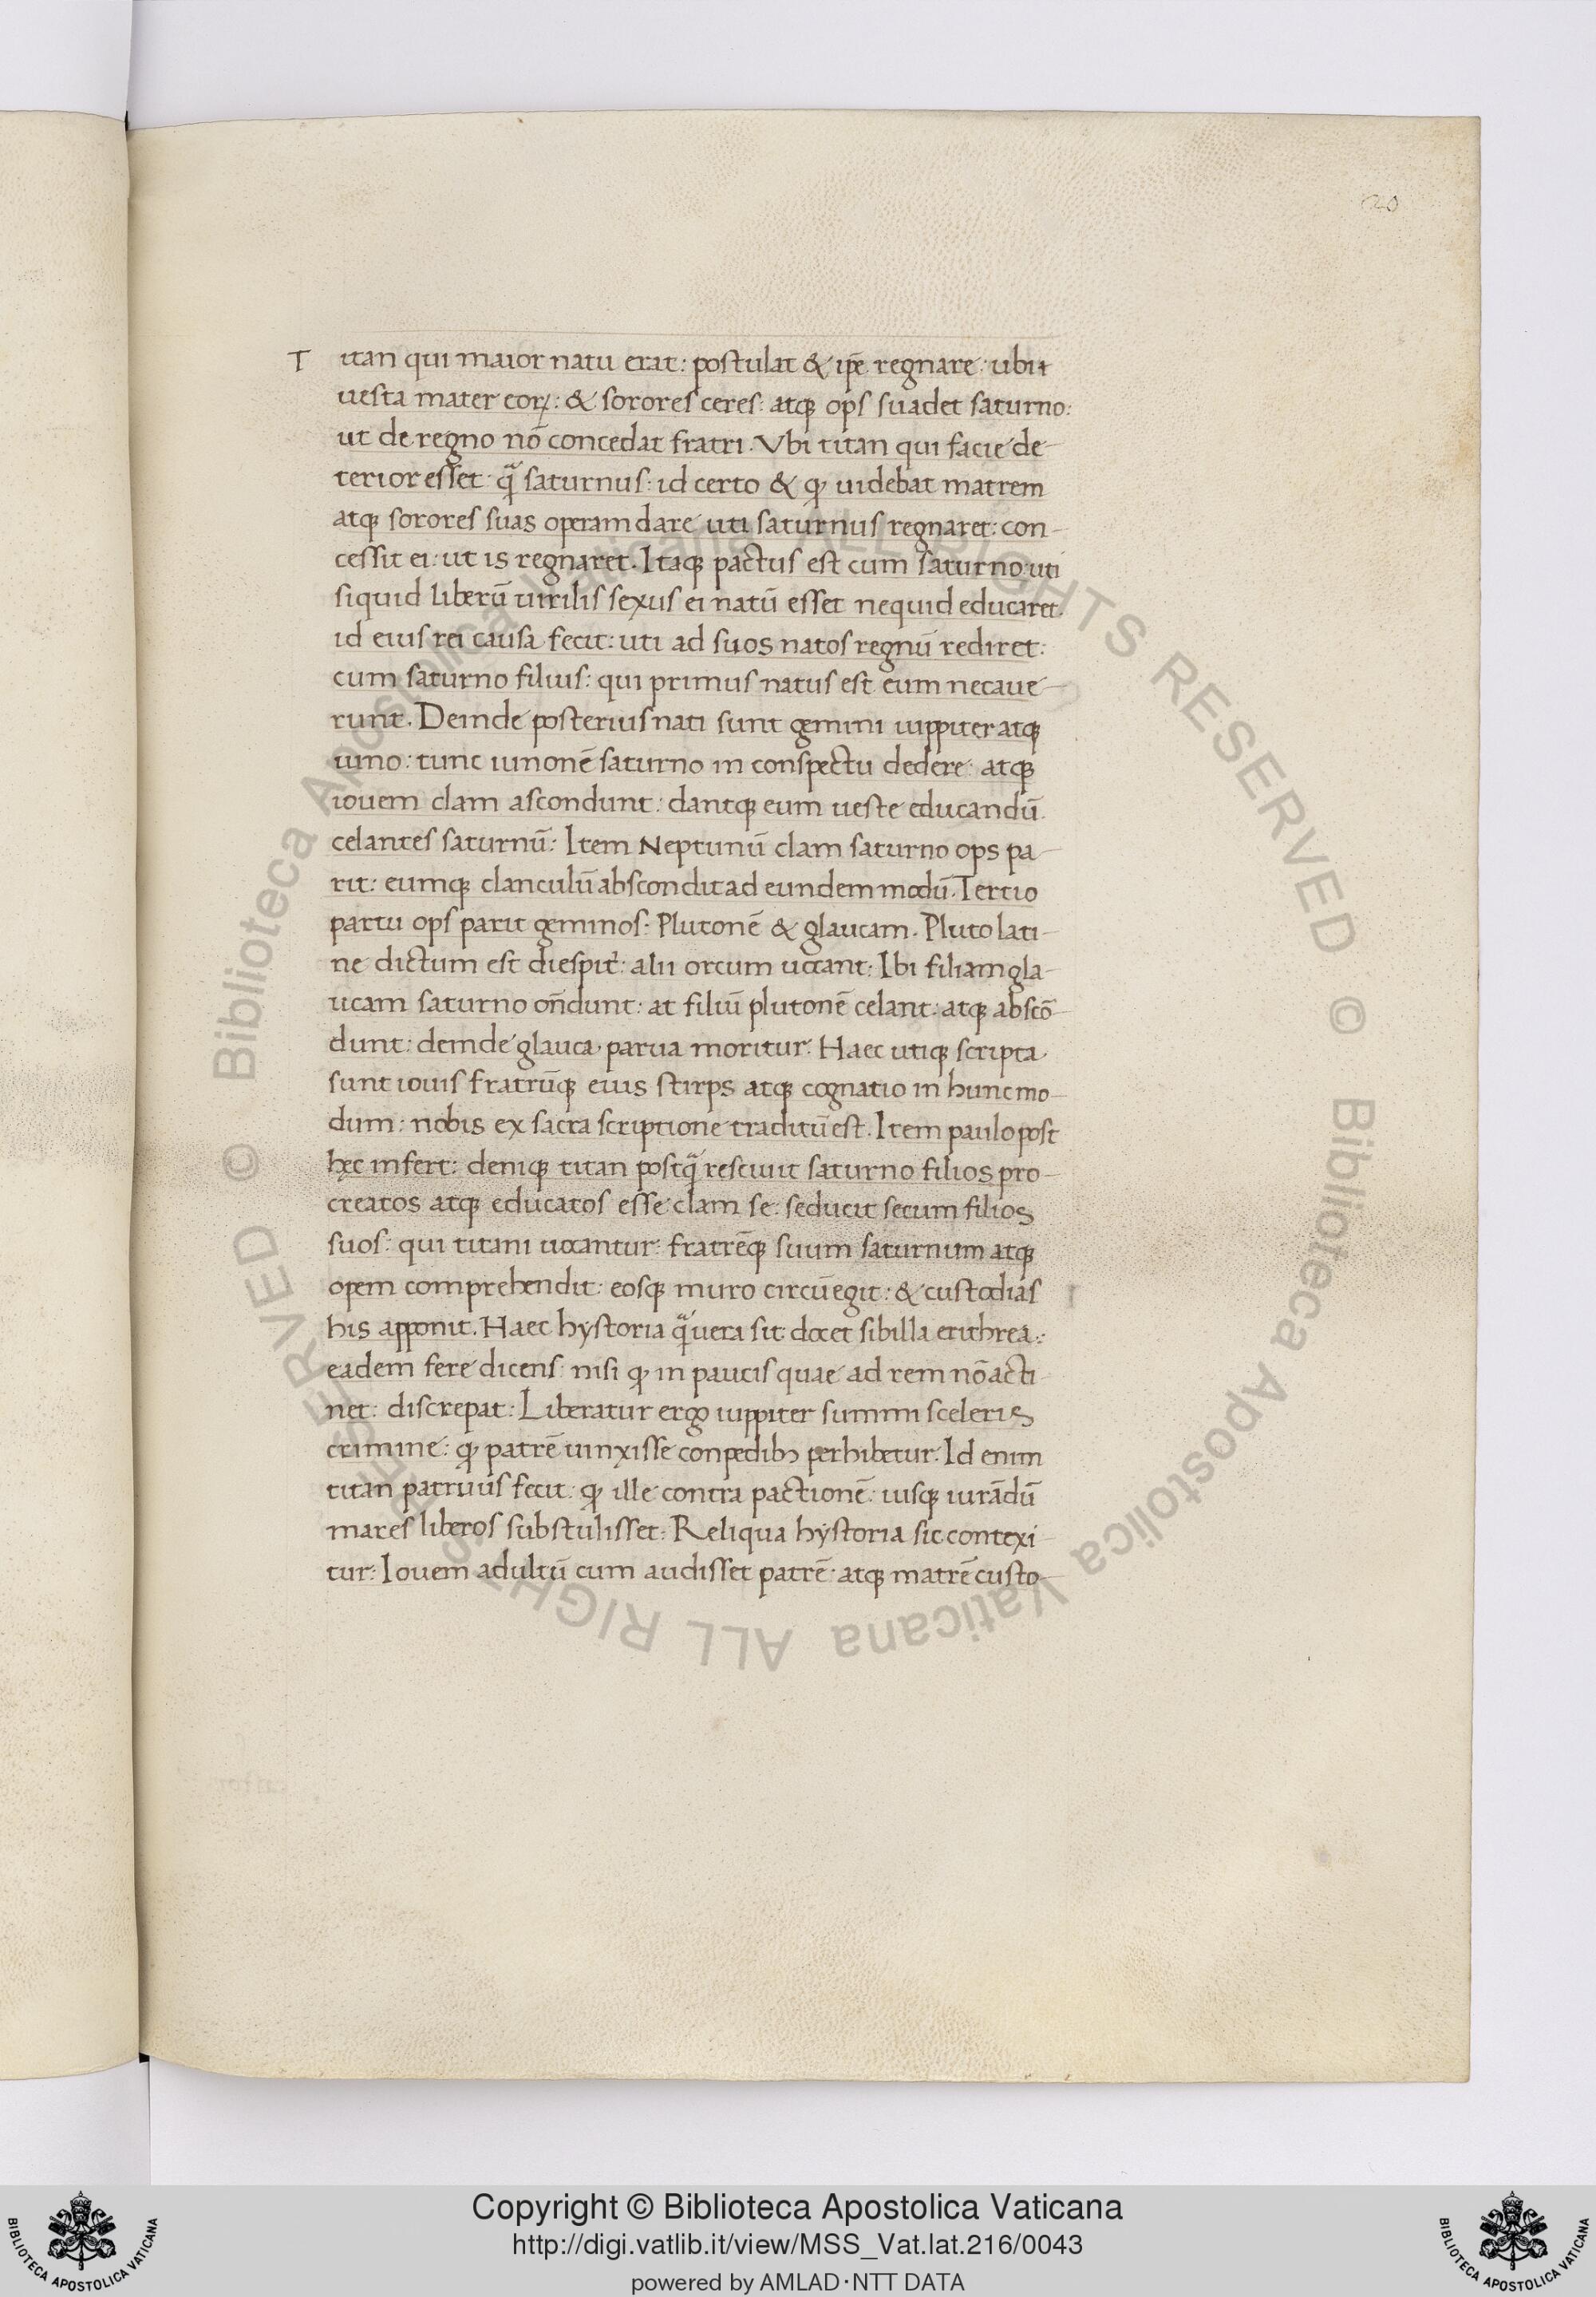 20
Titan qui maior natu erat: postulat & ip̄e regnare: ubi
uesta mater eoꝝ: & sorores ceres: atqꝫ ops suadet saturno:
ut de regno nō concedat fratri. Vbi titan qui facie de-
terior esset: qᷓ saturnus: id certo & ꝙ uidebat matrem
atqꝫ sorores suas operam dare uti saturnus regnaret: con-
cessit ei: ut is regnaret. Itaqꝫ pactus est cum saturno: uti
siquid liberū uirilis sexus ei natū esset nequid educaret.
id eius rei causa fecit: uti ad suos natos regnū rediret:
cum saturno filius: qui primus natus est eum necaue-
runt. Deinde posterius nati sunt gemini iuppiter atqꝫ
iuno: tunc iunonē saturno in conspectu dedere: atqꝫ
iouem clam ascondunt: dantqꝫ eum ueste educandū.
celantes saturnū: Item Neptunū clam saturno ops pa-
rit: eumqꝫ clanculū abscondit ad eundem modū. Tertio
partu ops parit geminos: Plutonē & glaucam. Pluto lati-
ne dictum est diespit̃: alii orcum uocant: Ibi filiam gla-
ucam saturno on̄dunt: at filiū plutonē celant: atqꝫ abscō-
dunt: deinde glauca parua moritur. Haec utiqꝫ scripta
sunt iouis fratrūqꝫ eius stirps atqꝫ cognatio in hunc mo-
dum: nobis ex sacra scriptione traditū est. Item paulo post
hęc infert: deniqꝫ titan postqᷓ resciuit saturno filios pro-
creatos atqꝫ educatos esse clam se: seducit secum filios
suos: qui titani uocantur: fratrēqꝫ suum saturnum atqꝫ
opem comprehendit: eosqꝫ muro circūegit: & custodias
his apponit. Haec hystoria qᷓ uera sit: docet sibilla erithrea:
eadem fere dicens: nisi ꝙ in paucis quae ad rem nō acti-
net: discrepat: Liberatur ergo iuppiter summi sceleris
crimine: ꝙ patrē uinxisse conpedibꝫ perhibetur. Id enim
titan patruus fecit: ꝙ ille contra pactionē: iusqꝫ iurādū
mares liberos substulisset: Reliqua hystoria sic contexi-
tur: Iouem adultū cum audisset patrē: atqꝫ matrē custo-
© Biblioteca Apostolica Vaticana ALL RIGHTS RESERVED
© Biblioteca Apostolica Vaticana ALL RIGHTS RESERVED
Copyright © Biblioteca Apostolica Vaticana
http://digi.vatlib.it/view/MSS_Vat.lat.216/0043
powered by AMLAD·NTT DATA
BIBLIOTECA APOSTOLICA VATICANA
BIBLIOTECA APOSTOLICA VATICANA